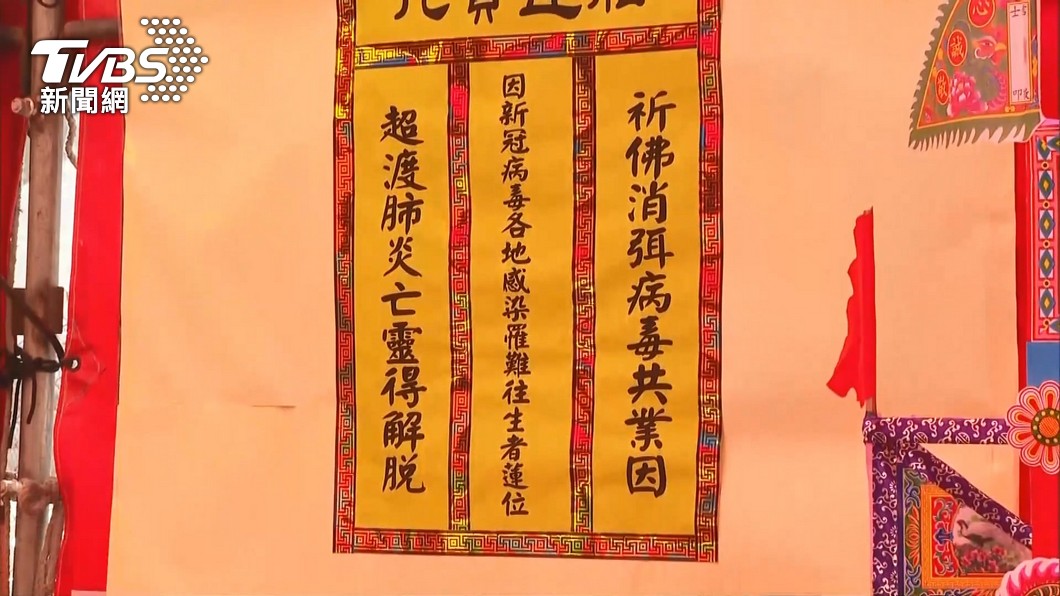 TVBS
新聞網
祈佛消弭病毒共業因
因新冠病毒各地感染罹難往生者蓮位
超渡肺炎亡靈得解脫
誠
敬